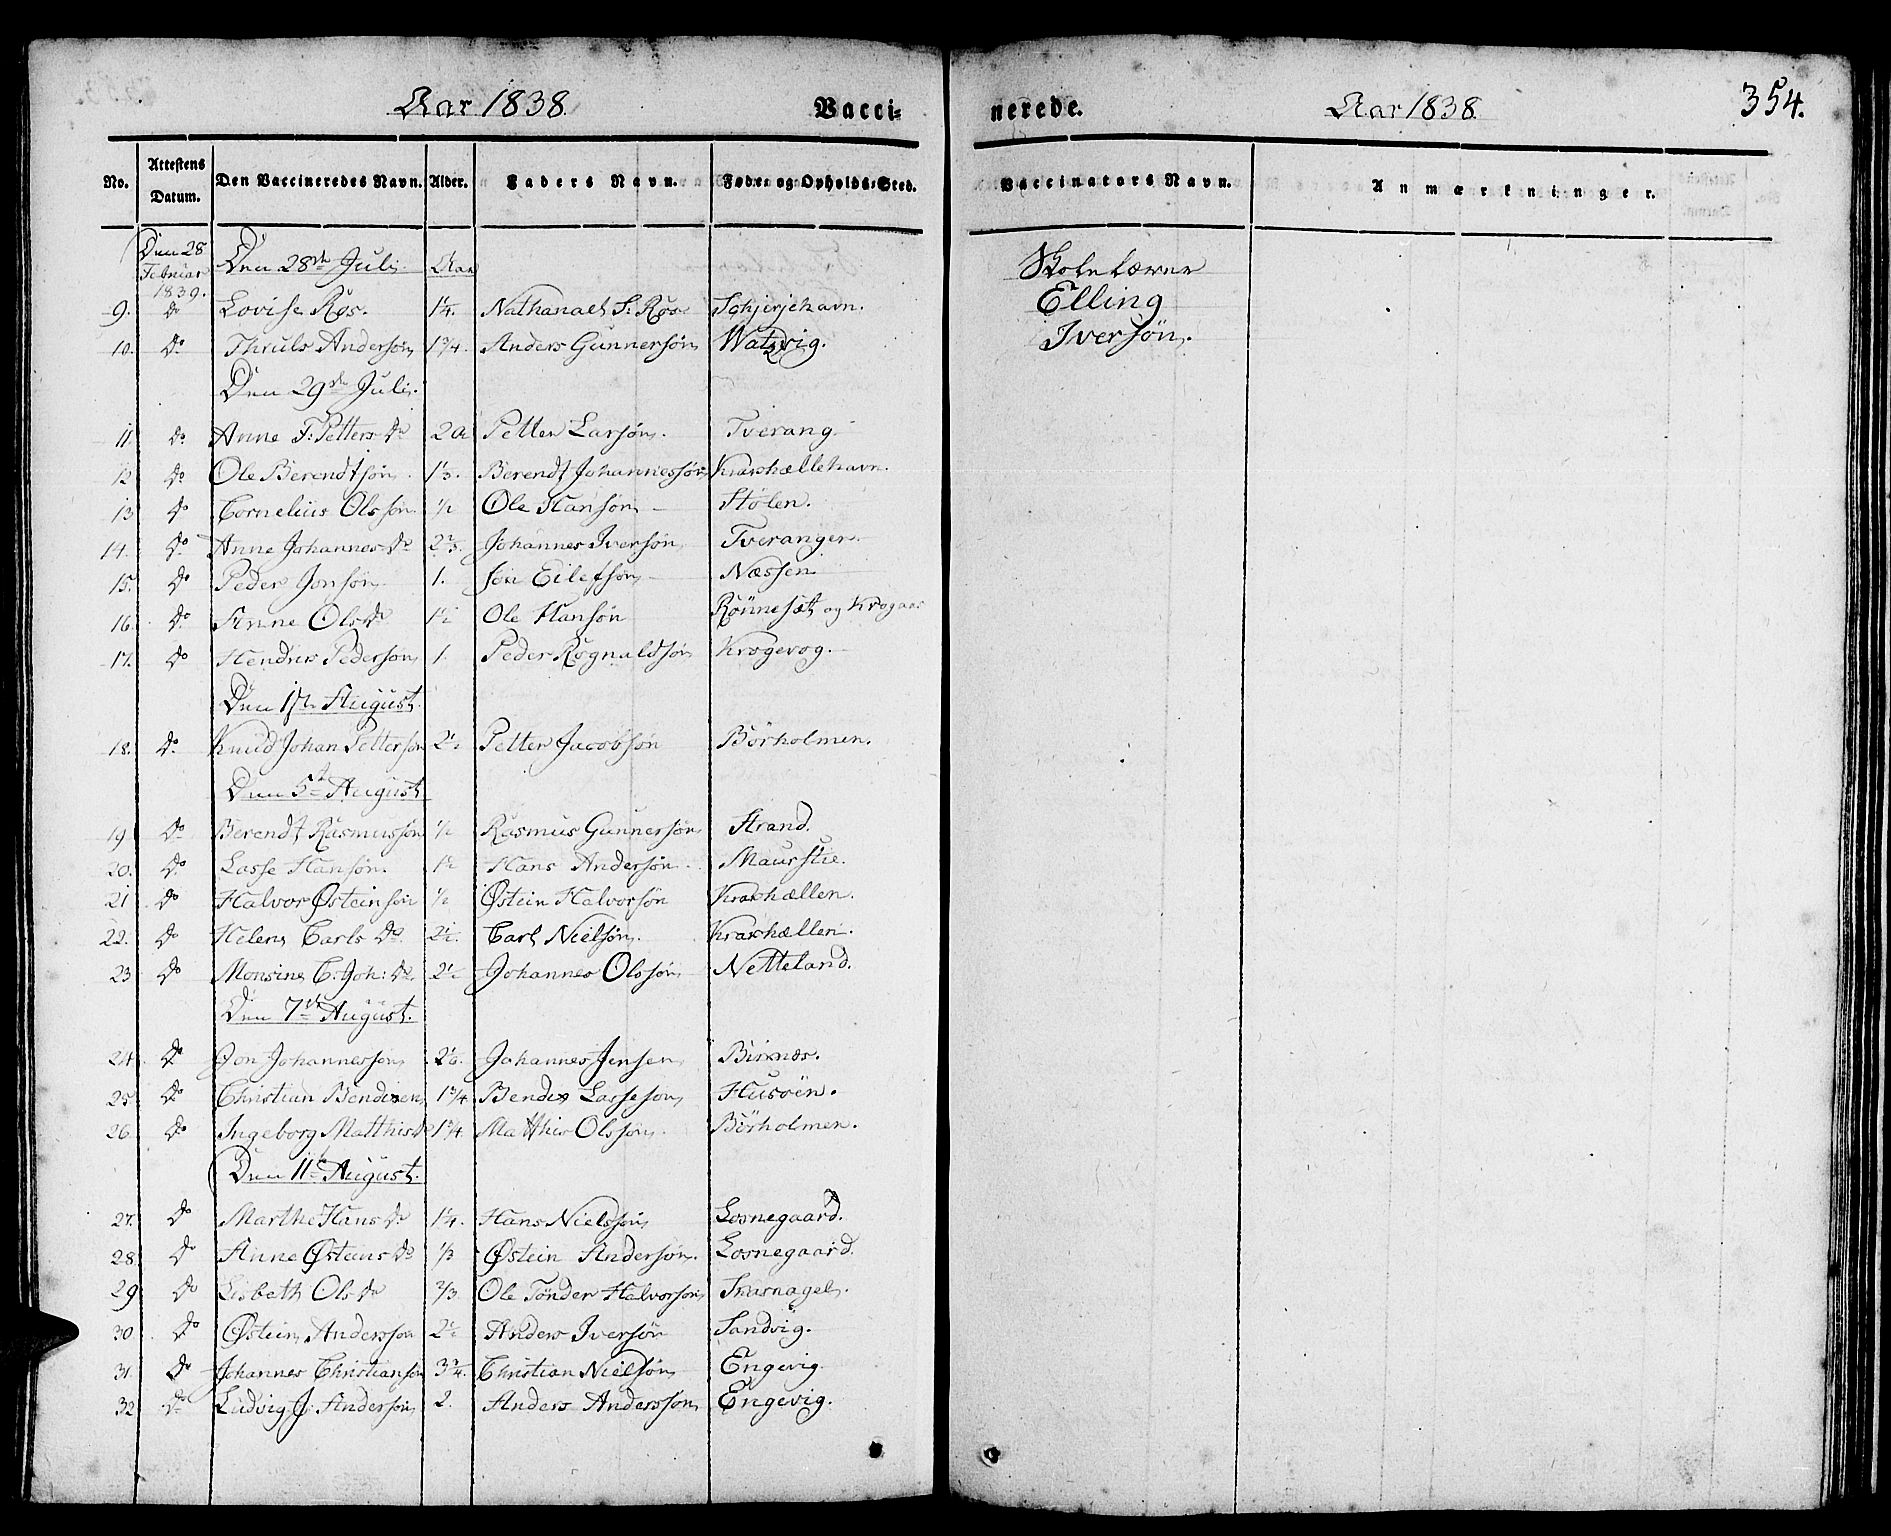 Aar 1838. Vacci-
nerede. Aar 1838. 354.
No. Attestens Datum. Den Vaccineredes Navn. Alder. Faders Navn. Føde- og Opholds-Sted. Vaccinators Navn. Anmærkninger.
Den 28 Februar 1839. Den 28de Juli. Aar Skolelærer
9. do Lovise Røs. 1¼. Nathanael S: Røs Schjerjehavn. Elling
10. do Thruls Andersøn 1¾. Anders Gunnersøn Watzvig. Iversøn.
Den 29de Juli.
11. do Anne F: Petters Dr 2 a Petter Larsøn. Tverang
12 do Ole Berendtsøn 1⅓. Berendt Johannessøn Krakhællehavn.
13 do Cornelius Olssøn ½ Ole Hansøn Stølen.
14. do Anne Johannes Dr 2⅔. Johannes Iversøn Tveranger.
15. do Peder Jonsøn 1. Jon Eilefsøn Næssen
16. do Anne Ols Dr 1½ Ole Hansøn Rönnesæt og Krogaas
17. do Hendrik Pedersøn 1. Peder Rognaldsøn Krogevog.
Den 1ste August.
18. do Knud Johan Pettersøn 2½ Petter Jacobsøn Börholmen.
Den 5te August
19 do Berendt Rasmussøn ½ Rasmus Gunnersøn Strand.
20. do Lasse Hansøn. 1½ Hans Andersøn. Maurstie.
21 do Halvor Østeinsøn ½ Østein Halvorsøn Krakhællen.
22. do Helene Carls Dr 2½. Carl Nielsøn. Krakhællen.
23 do Monsine C: Joh: Dr 2½ Johannes Olssøn Netteland.
Den 7de August.
24 do Jon Johannessøn Johannes Jensen Birknæs.
25 do Christian Bendixen 1¾ Bendix Lassesøn Husöen.
26. do Ingeborg Matthis Dr 1¾. Matthis Olssøn. Börholmen.
Den 11te August.
27. do Marthe Hans Dr 1¼. Hans Nielssøn Losnegaard.
28. do Anne Østens Dr ⅓ Østein Andersøn. Losnegaard.
29 do Lisbeth Ols Dr ⅔ Ole Tönder Halvorsøn Snarnagel.
30 do Østein Anderssøn 2½ Anders Iversøn Sandvig.
31. do Johannes Christiansøn 3¾. Christian Nielsøn Engevig.
32 do Ludvig J: Andersøn 2. Anders Anderssøn Engevig.